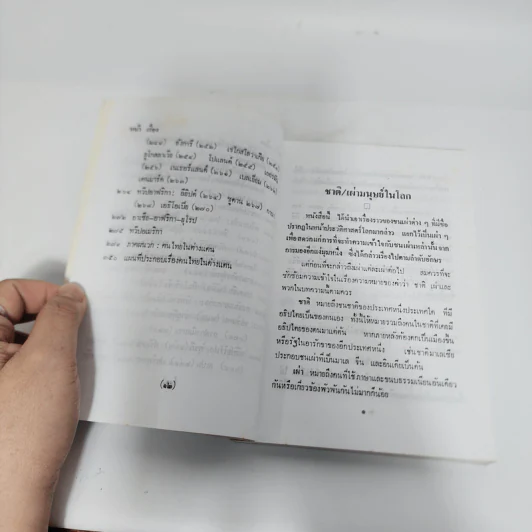 หน้า เรื่อง
(๒๔๐) ฮังการี (๒๕๒) เชโกสโลวาเกีย
ยูโกสลาเวีย (๒๕๔) โปแลนด์ (๒๕๕)
(๒๕๖) เนเธอร์แลนด์ (๒๖๑) เบลเยี่ยม
เดนมาร์ค (๒๖๓)
๒๖๔ ทวีปอาฟริกา: อียิปต์ (๒๖๔) ซูดาน ๒๖๗)
(๒๖๘) เอธิโอเปีย (๒๗๐)
อาเซีย-อาฟริกา-ยุโรป
ทวีปอเมริกา
ภาคผนวก : คนไทยในต่างแดน
แผนที่ประกอบเรื่องคนไทยในต่างแดน
(๑๒)
ชาติ/เผ่ามนุษย์ในโลก
หนังสือนี้ ได้นำเอาเรื่องราวของชนเผ่าต่าง ๆ ที่มีชื่อ
ปรากฏในหน้าประวัติศาสตร์โลกมากล่าว แยกไว้เป็นเผ่า ๆ
เพื่อสะดวกแก่การที่จะทำความเข้าใจกับชนเผ่าเหล่านั้น จาก
การมองที่แง่มุมหนึ่ง ซึ่งได้กล่าวเรื่องไปตามลำดับอักษร
แต่ก่อนที่จะกล่าวถึงเผ่าแต่ละเผ่าต่อไป สมควรที่จะ
ซักซ้อมความเข้าใจในเรื่องความหมายของคำว่า ชาติ เผ่าและ
พวกในบทความนี้ตามควร
ชาติ หมายถึงชนชาติของประเทศหนึ่งประเทศใด ที่มี
อธิปไตยเป็นของตนเอง ทั้งนี้ให้หมายรวมถึงคนในชาติที่เคยมี
อธิปไตยของตนมาแต่ต้น หากภายหลังต้องตกเป็นเมืองขึ้น
หรือรัฐในอารักขาของอีกประเทศหนึ่ง เช่นชาติมาเลเซีย
ประกอบชนเผ่าที่เป็นมาเล จีน และอินเดียเป็นต้น
เผ่า หมายถึงคนที่ใช้ภาษาและขนบธรรมเนียมอันเดียว
กันหรือเกี่ยวข้องพัวพันกันไม่มากก็น้อย